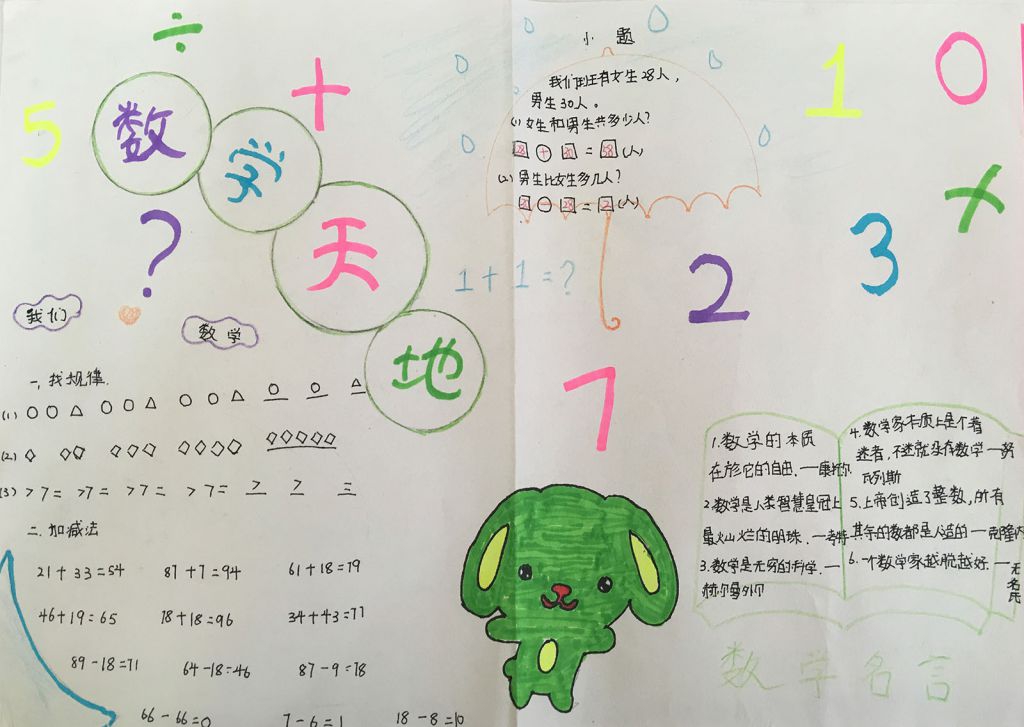 ÷
5
+
数学天地
?
我们
数学
一、找规律.
(1) ○ ○ △ ○ ○ △ ○ ○ △ ○ ○ △
(2) ◇ ◇◇ ◇◇◇ ◇◇◇◇ ◇◇◇◇◇
(3) >7= >7= >7= >7= > > =
二.加减法
21+33=54 87+7=94 61+18=79
46+19=65 78+18=96 34+43=77
89-18=71 64-18=46 87-9=78
66-66=0 7-6=1 18-8=10
小题
我们班有女生28人,
男生30人。
(1) 女生和男生共多少人?
28 + 30 = 58 (人)
(2) 男生比女生多几人?
- 28 = 2 (人)
1+1=?
1 0
×
2 3
7
1.数学的本质
在於它的自由.一康托尔
2.数学是人类智慧皇冠上
最灿烂的明珠.一考特
3.数学是无穷的科学.一
赫尔曼外尔
4.数学家本质上是个着
迷者,不迷就没有数学一努
瓦列斯
5.上帝创造了整数,所有
其余的数都是人造的一克隆内
6.一个数学家越脱越好.一无名民
数学名言